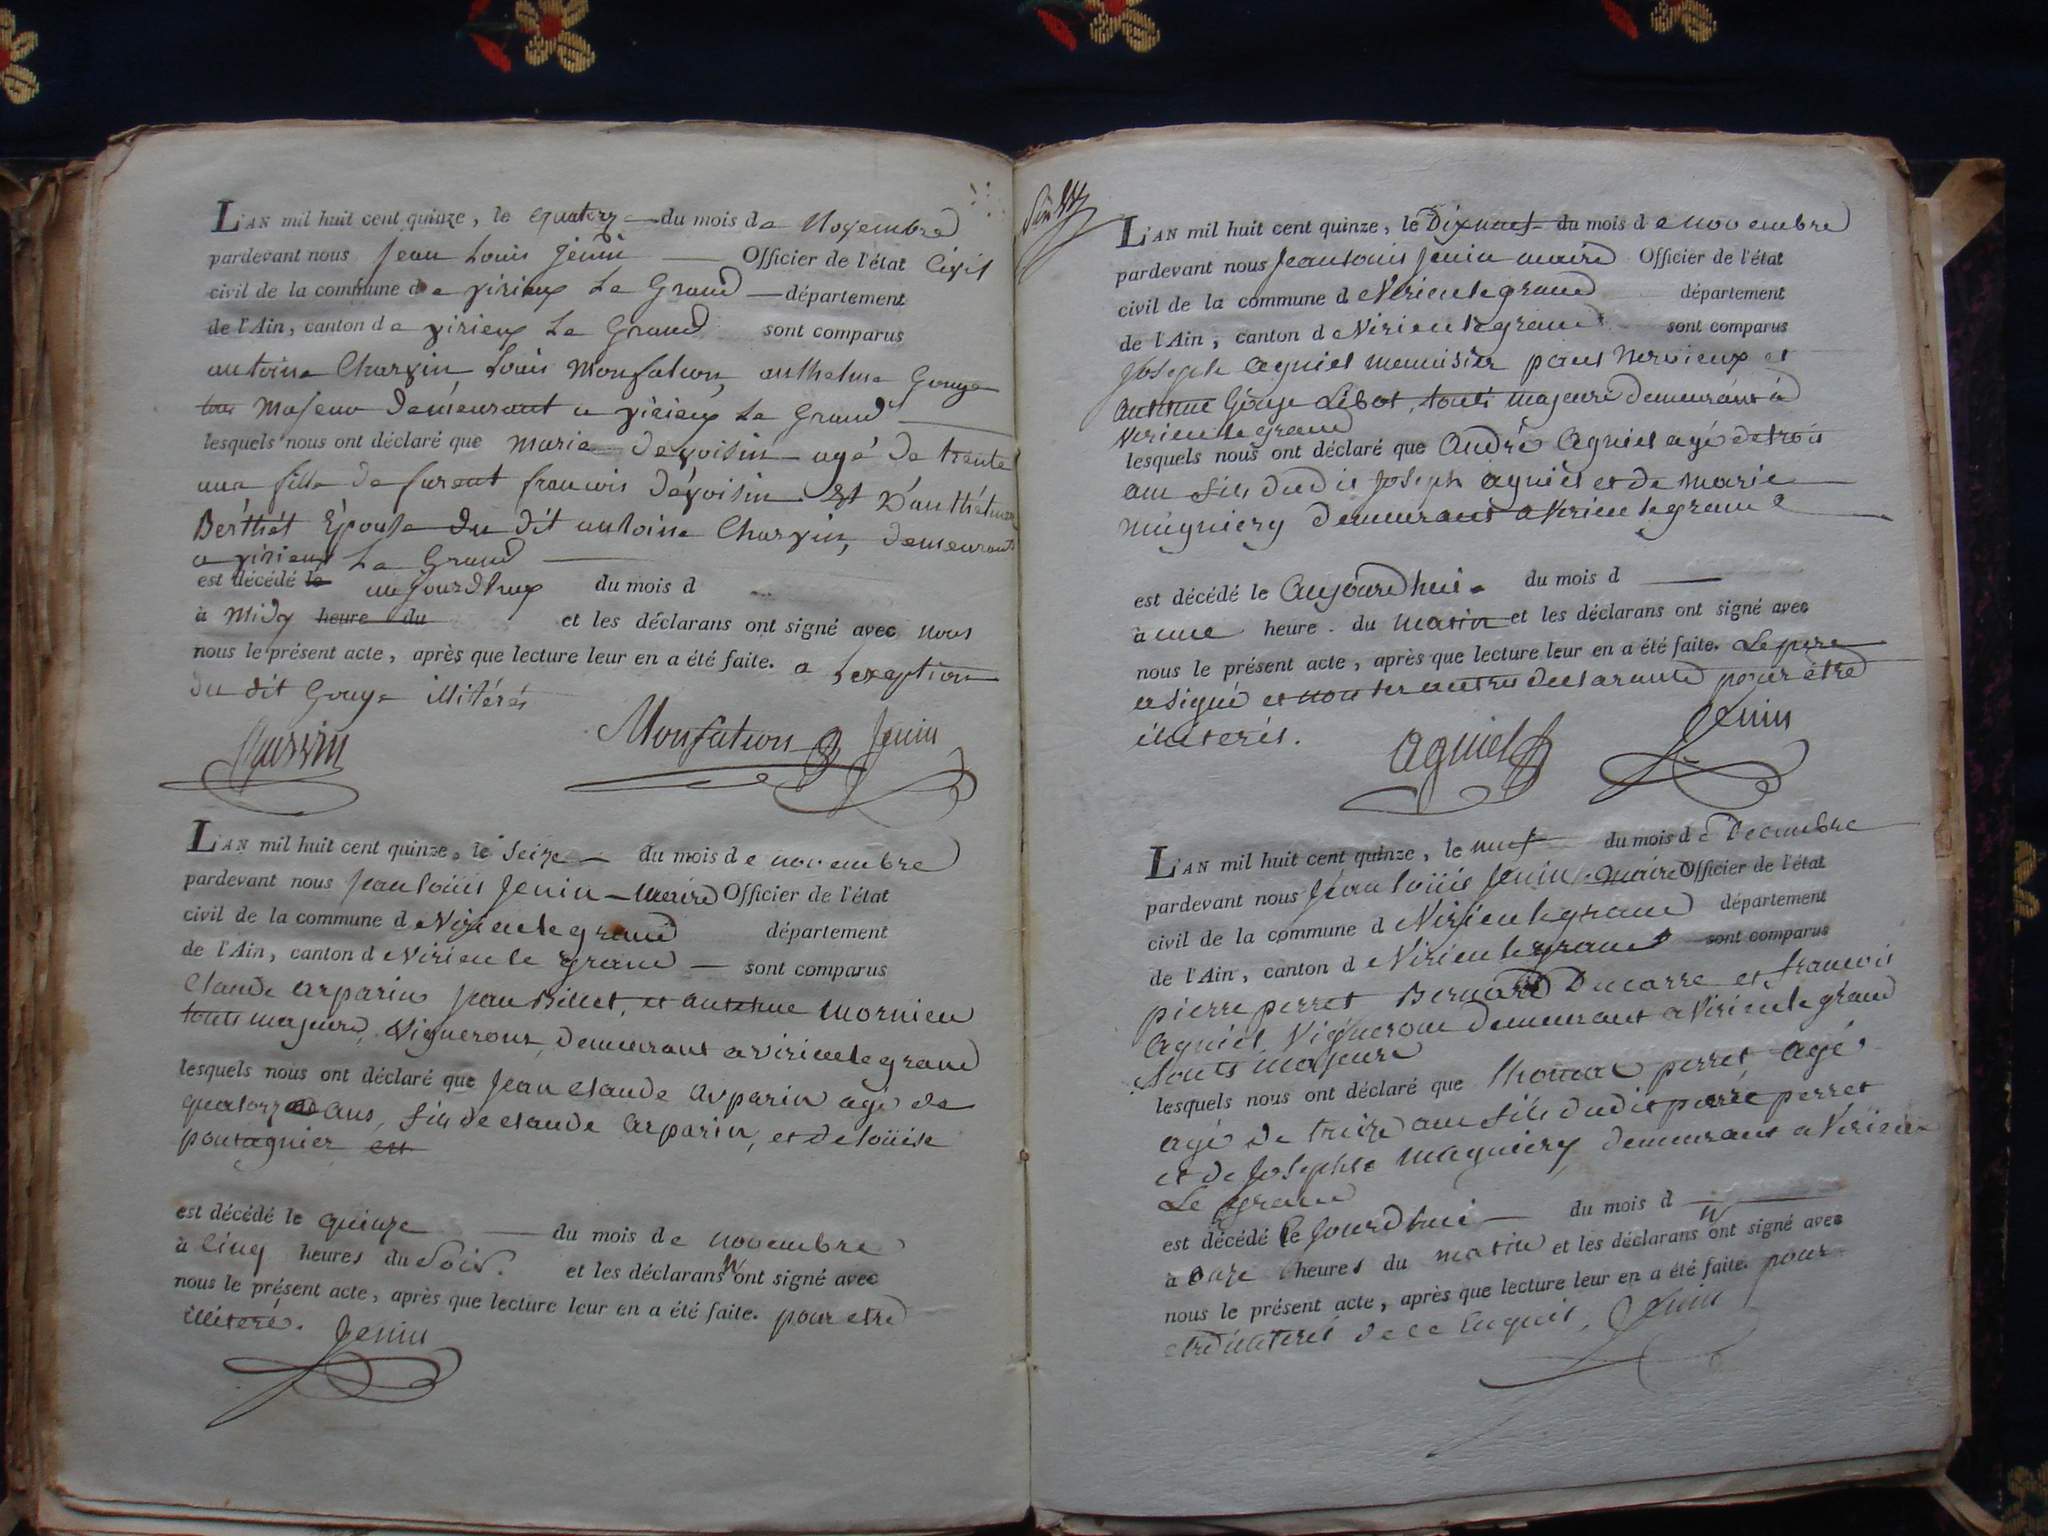 L'AN mil huit cent quinze, le quatorze du mois de Novembre
pardevant nous Jean Louis Jenin Officier de l'état Civil
civil de la commune de Virieux Le Grand département
de l'Ain, canton de Virieux Le Grand sont comparus
antoine Charvin, Louis Monfalcon, anthelme Gouye
tous Majeur Demeurant a Virieux Le Grand
lesquels nous ont déclaré que Marie devoisin agé de trente
une fille de furent francois dévoisin Et D'anthélme
Berthét Épouse du dit antoine Charvin, demeurant
a Virieux Le Grand
est décédé le aujourdhuy du mois d
à Midy heure du et les déclarans ont signé avec nous
nous le présent acte, après que lecture leur en a été faite. a Lexeption
du dit Gouye illitérés
Charvin Monfalcon Jenin
L'AN mil huit cent quinze, le seize du mois de novembre
pardevant nous Jean loüis Jenin maire Officier de l'état
civil de la commune de Virieu le grand département
de l'Ain, canton de Virieu le grand sont comparus
Claude arparin Jean Billet, et antelme mornieu
touts majeurs, Vignerons, demeurant a virieu le grand
lesquels nous ont déclaré que Jean claude arparin agé de
quatorze ans, fils de claude arparin, et de loüise
pontagnier est
est décédé le quinze du mois de novembre
à Cinq heures du soir. et les déclarans n ont signé avec
nous le présent acte, après que lecture leur en a été faite. pour etre
illiteré. Jenin
L'AN mil huit cent quinze, le Dixneuf du mois de novembre
pardevant nous Jean louis Jenin maire Officier de l'état
civil de la commune de Virieu le grand département
de l'Ain, canton de Virieu le grand sont comparus
Joseph agniel menuisier paul Nervieux et
antelme Gouye Libot, touts majeure demeurant à
Virieu le grand
lesquels nous ont déclaré que André Agniel agé de trois
ans fils dudit Joseph agniel et de marie
magniery demeurant a Virieu le grand
est décédé le Aujourdhui. du mois d
à une heure du matin et les déclarans ont signé avec
nous le présent acte, après que lecture leur en a été faite. Le pere
a signé et non les autres declarants pour étre
illiterés. agniel Jenin
L'AN mil huit cent quinze, le neuf du mois de Decembre
pardevant nous Jean loüis Jenin maire Officier de l'état
civil de la commune de Virieu le grand département
de l'Ain, canton de Virieu le grand sont comparus
pierre perret Bernard Ducarre et francois
Agniél Vigneron demeurant a Virieu le grand
touts majeure
lesquels nous ont déclaré que Thomas perret, agé
agé de treize ans fils dudit pierre perret
et de Josephte magniery demeurant a Virieu
Le grand
est décédé le Jourdhui du mois d
à onze heures du matin et les déclarans n ont signé avec
nous le présent acte, après que lecture leur en a été faite. pour
etre illiterés de ce Enquis, Jenin